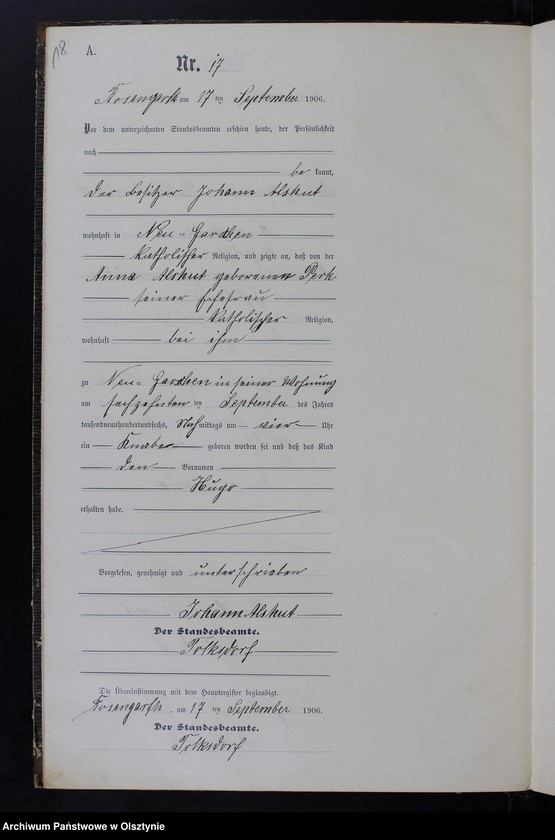 18
A.
Nr. 17
Rosengarth am 17 ten September 1906.
Vor dem unterzeichneten Standesbeamten erschien heute, der Persönlichkeit
nach
be kannt,
der Besitzer Johann Alshut
wohnhaft in Neu-Garschen
katholischer Religion, und zeigte an, daß von der
Anna Alshut geborenen Perk
seiner Ehefrau
katholischer Religion,
wohnhaft bei ihm
zu Neu-Garschen in seiner Wohnung
am sechzehnten ten September des Jahres
tausendneunhundertundsechs, Nachmittags um vier Uhr
ein Knabe geboren worden sei und daß das Kind
den Vornamen
Hugo
erhalten habe.
Vorgelesen, genehmigt und unterschrieben
Johann Alshut
Der Standesbeamte.
Tolksdorf
Die Übereinstimmung mit dem Hauptregister beglaubigt.
Rosengarth, am 17 ten September 1906.
Der Standesbeamte.
Tolksdorf
Archiwum Państwowe w Olsztynie